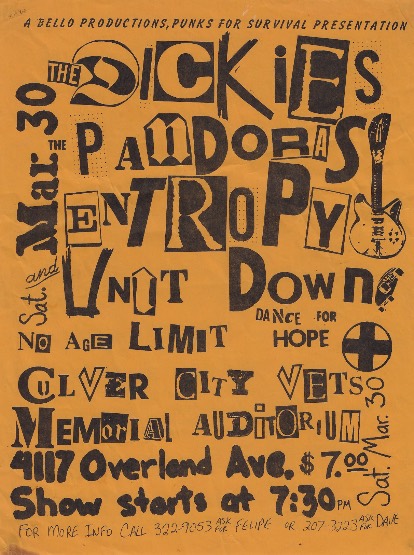 A BELLO PRODUCTIONS, PUNKS FOR SURVIVAL PRESENTATION
THE DICKIES
Sat. Mar. 30
THE PANDORAS
ENTROPY
and UNIT DOWN
DANCE FOR
NO AGE LIMIT HOPE
CULVER CITY VETS
MEMORIAL AUDITORIUM
Sat, Mar. 30
4117 Overland Ave. $7.00
Show starts at 7:30 PM
FOR MORE INFO CALL 322-9053 ASK FOR FELIPE OR 207-3223 ASK FOR DAVE